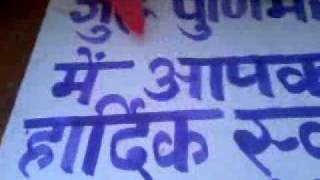 गुरु पुर्णिमा
में आपक
हार्दिक स्व